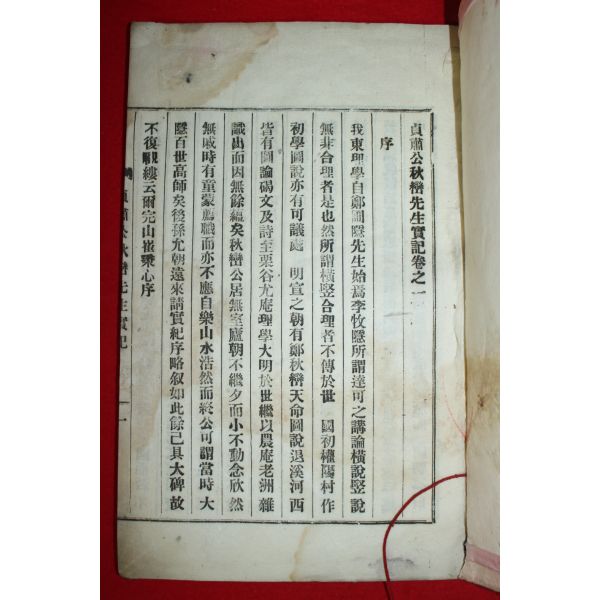 貞肅公秋巒先生實記卷之一
序
我東理學自鄭圃隱先生始焉李牧隱所謂達可之講論橫說竪說
無非合理者是也然所謂橫竪合理者不傳於世 國初權陽村作
初學圖說亦有可議處 明宣之朝有鄭秋巒天命圖說退溪河西
皆有圖論碣文及詩至栗谷尤庵理學大明於世繼以農庵老洲雜
識出而因無餘蘊矣秋巒公居無室廬朝不繼夕而小不動念欣然
無戚時有童蒙薦職而亦不應自樂山水浩然而終公可謂當時大
隱百世高師矣後孫允朝遠來請實紀序略叙如此餘已具大碑故
不復覼縷云爾完山崔秉心序
貞肅公秋巒先生實記
一